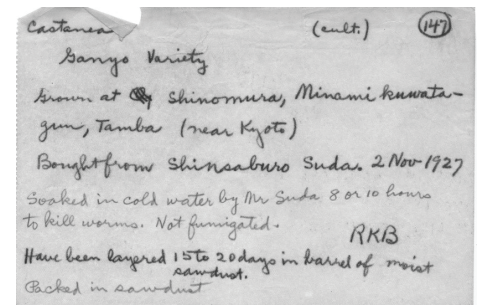 Castanea (cult.) 147
Ganyo Variety
Grown at Shinomura, Minami kuwata-
gun, Tamba (near Kyoto)
Bought from Shinsaburo Suda. 2 Nov 1927
Soaked in cold water by Mr Suda 8 or 10 hours
to kill worms. Not fumigated.
RKB
Have been layered 15 to 20 days in barrel of moist
sawdust.
Packed in sawdust